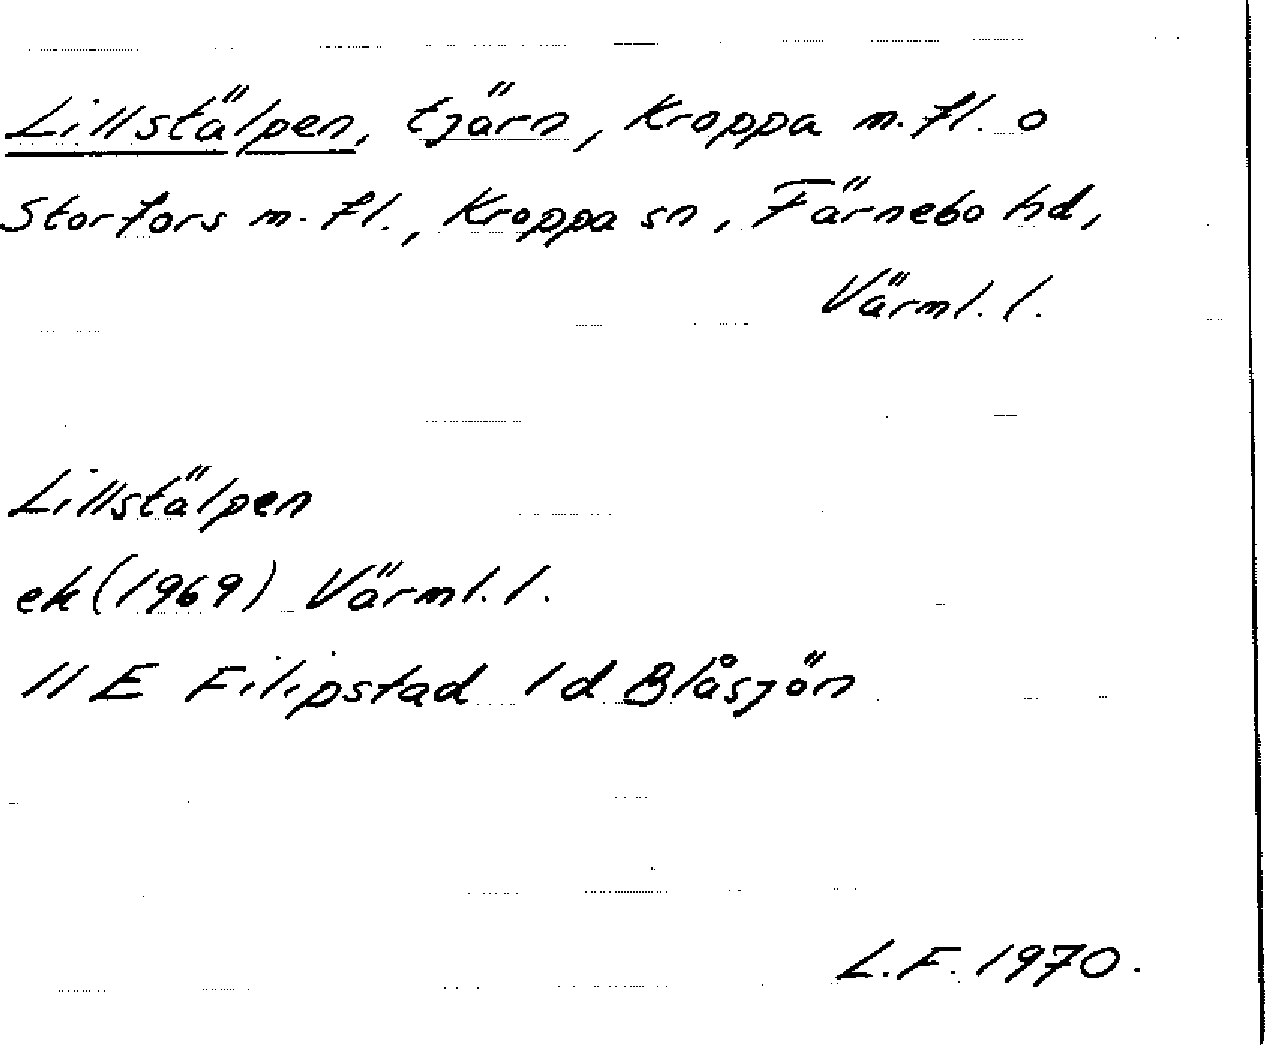 Lillstälpen, tjärn, Kroppa m.fl. o
Storfors m.fl., Kroppa sn, Färnebo hd,
Värml. l.
Lillstälpen
ek (1969) Värml. l.
11 E Filipstad 1 d Blåsjön
L.F. 1970.